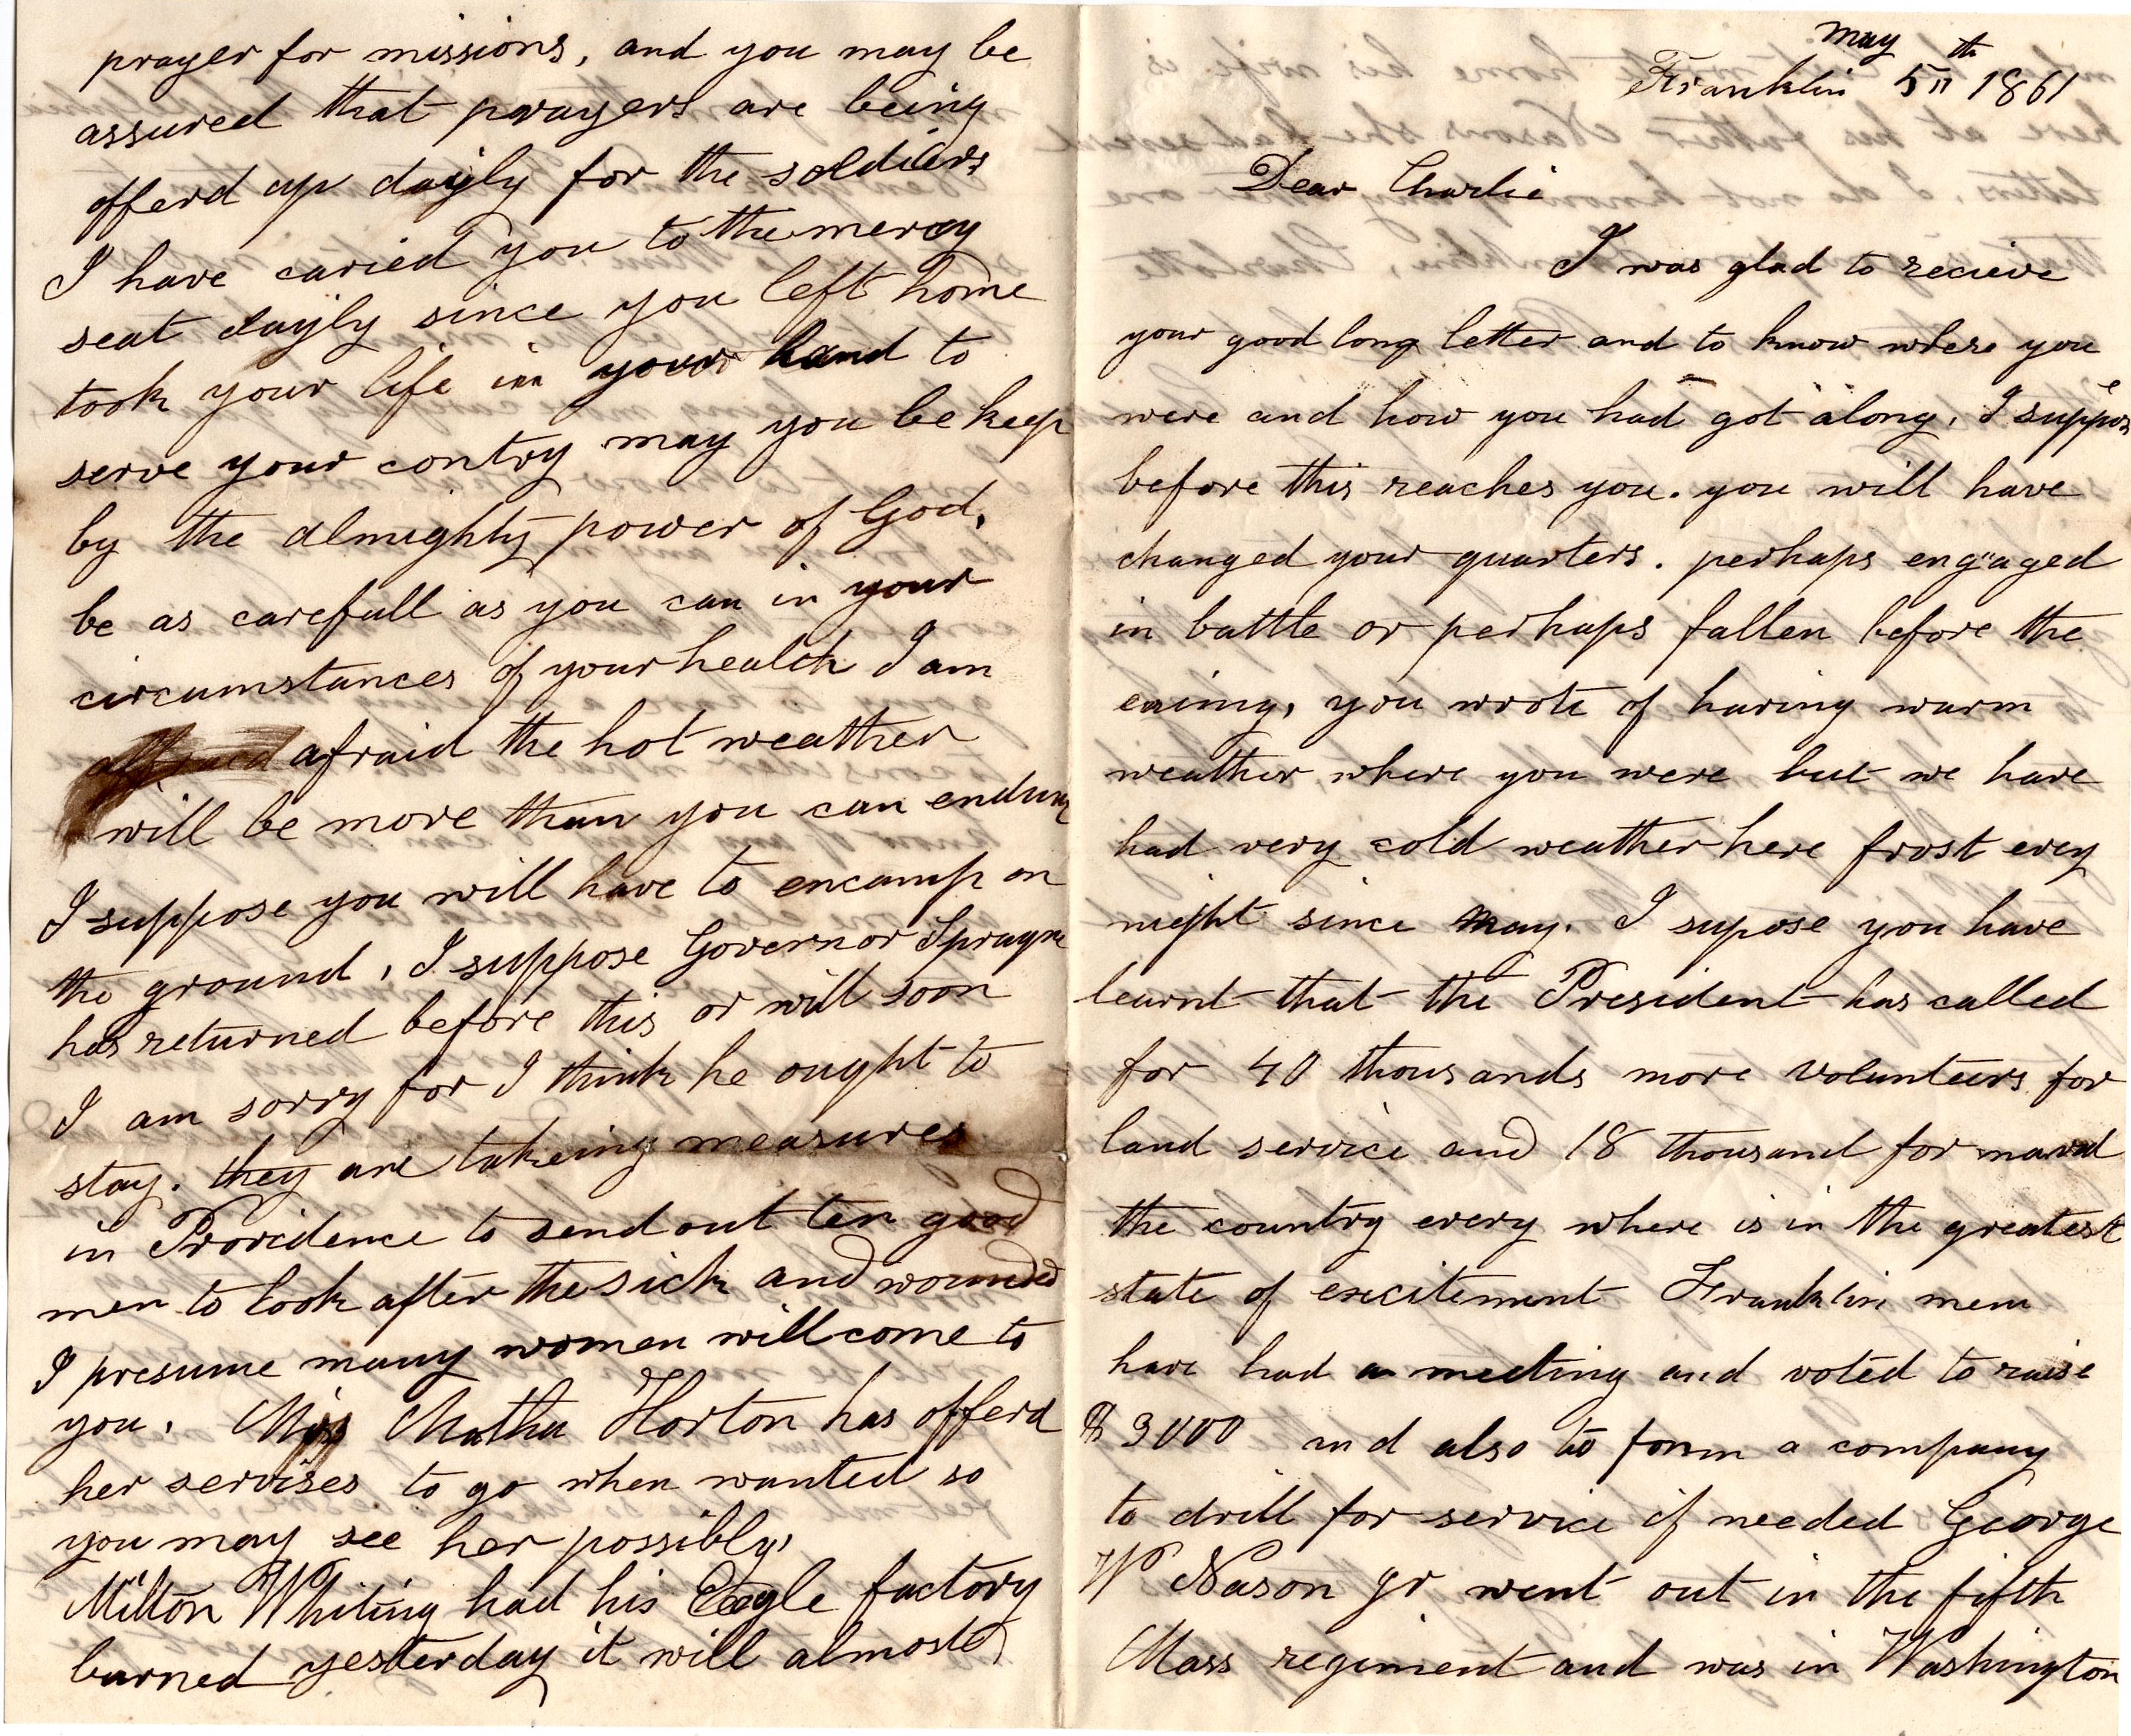 may
Franklin 5th 1861
Dear Charlie
I was glad to recieve
your good long letter and to know where you
were and how you had got along, I suppose
before this reaches you. you will have
changed your quarters. perhaps engaged
in battle or perhaps fallen before the
enimy, you wrote of having warm
weather where you were but we have
had very cold weather here frost evey
night since may. I supose you have
learnt that the President has called
for 40 thousands more volunteers for
land service and 18 thousand for naval
the country every where is in the greatest
state of excitement Franklin men
have had a meeting and voted to raise
$ 3000 and also to form a company
to drill for service if needed George
W Nason jr went out in the fifth
Mass regiment and was in Washington
prayer for missions, and you may be
assured that prayers are being
offerd up dayly for the soldiers
I have caried you to the mercy
seat dayly since you left home
took your life in your hand to
serve your contry may you be keep
by the almighty power of God,
be as carefull as you can in your
circumstances of your health I am
afraid the hot weather
will be more than you can endure
I suppose you will have to encamp on
the ground, I suppose Governor Sprague
has returned before this or will soon
I am sorry for I think he ought to
stay. they are takeing measures
in Providence to send out ten good
men to look after the sick and wounded
I presume many women will come to
you, Miss Matha Horton has offerd
her servises to go when wanted so
you may see her possibly,
Milton Whiting had his Eagle factory
burned yesterday it will almost